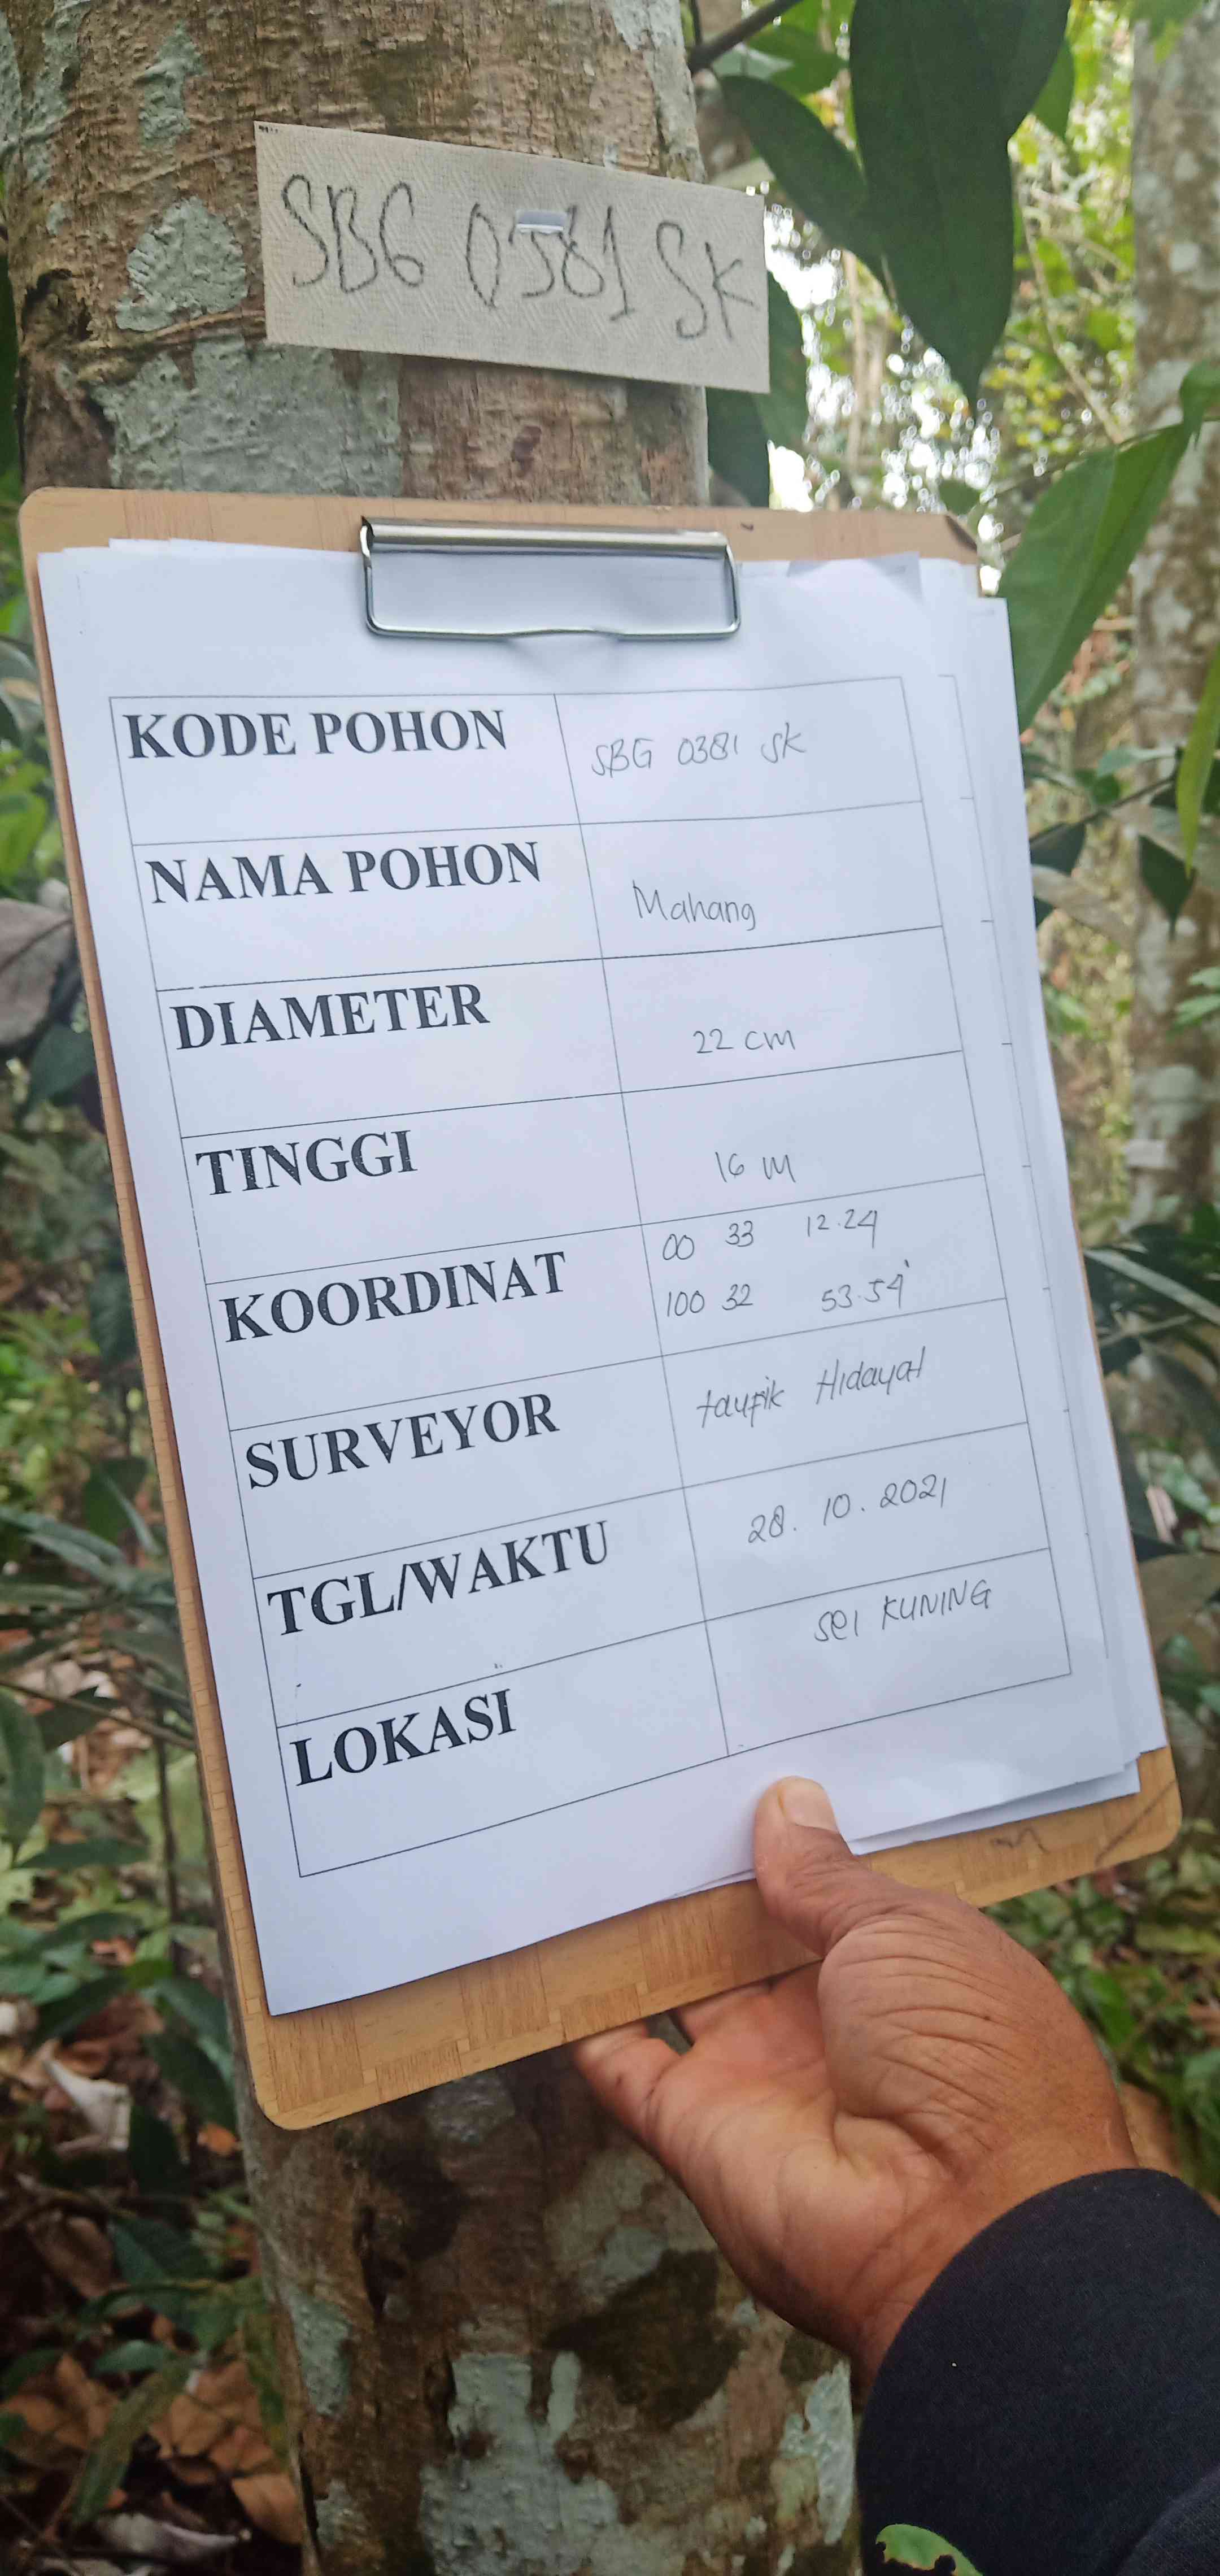 SBG 0381 SK
KODE POHON SBG 0381 SK
NAMA POHON Mahang
DIAMETER 22 cm
TINGGI 16 m
KOORDINAT 00 33 12.24
100 32 53.54
SURVEYOR taufik Hidayat
TGL/WAKTU 28.10.2021
LOKASI sei KUNING